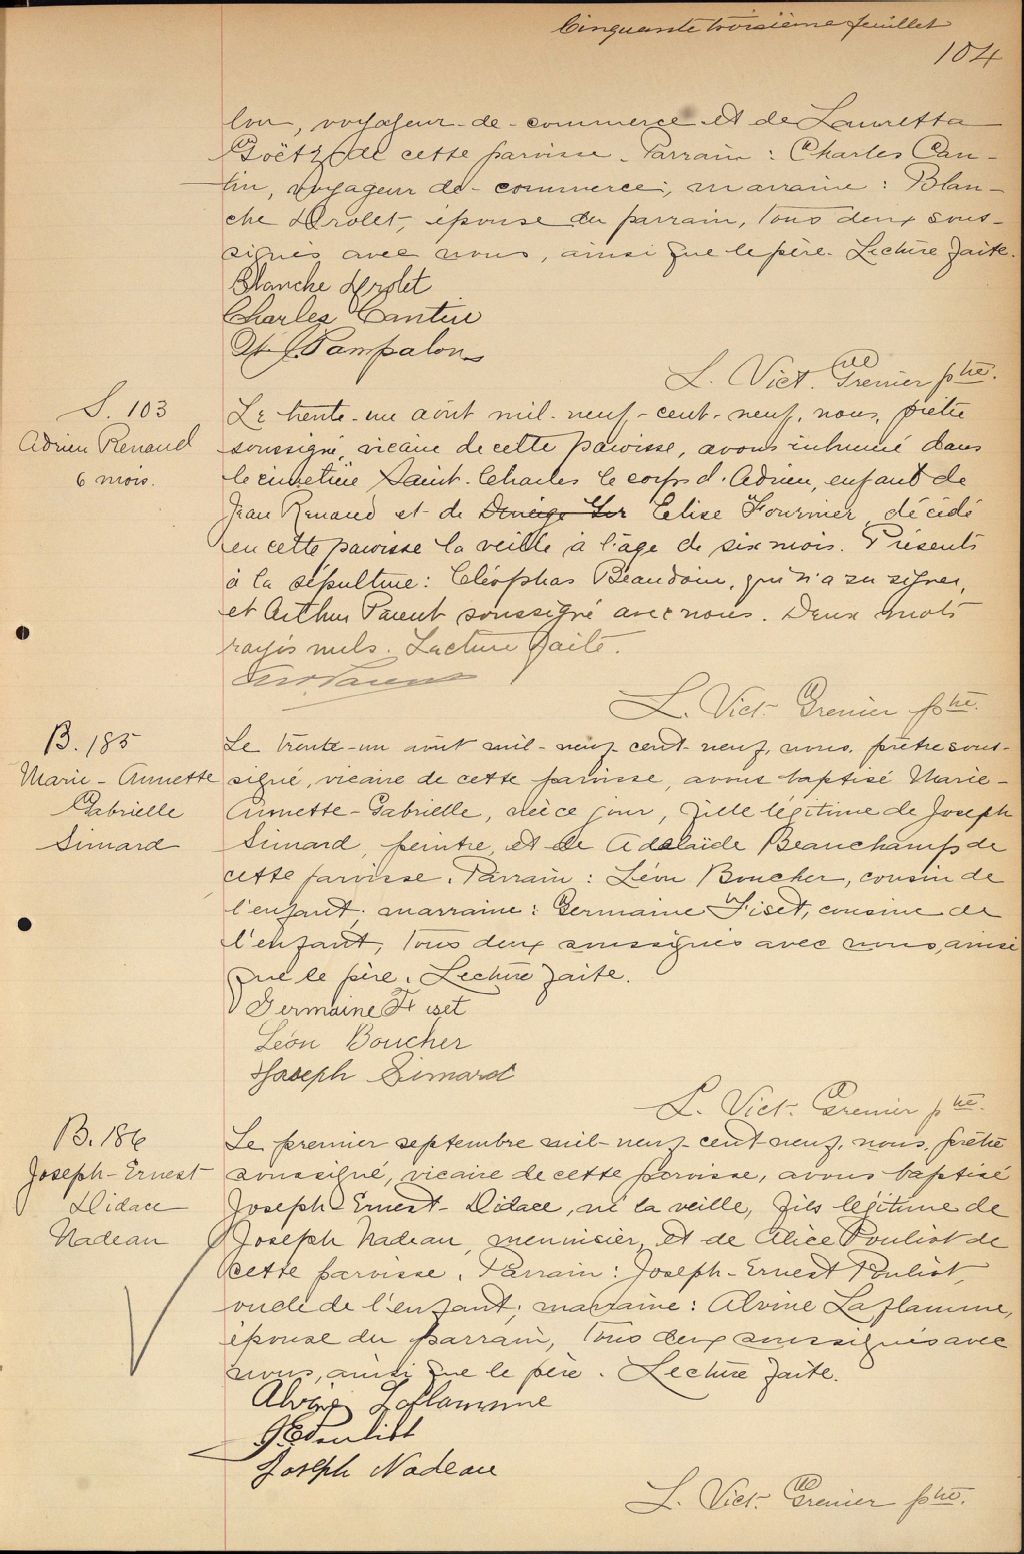 Cinquante troisième feuillet
104
lon, voyageur-de-commerce et de Lauretta
Goëtz de cette paroisse. Parrain: Charles Can-
tin, voyageur de-commerce; marraine: Blan-
che Drolet, épouse du parrain, tous deux sous-
signés avec nous, ainsi que le père. Lecture faite.
Blanche Drolet
Charles Cantin
Pampalon
L. Vict. Grenier ptre.
S. 103
Adrien Renaud
6 mois.
Le trente-un août mil-neuf-cent-neuf, nous, prêtre
soussigné, vicaire de cette paroisse, avons inhumé dans
le cimetière Saint-Charles le corps d'Adrien, enfant de
Jean Renaud et de Elise Fournier, décédé
en cette paroisse la veille à l'âge de six mois. Présents
à la sépulture: Cléophas Beaudoin, qui n'a su signer,
et Arthur Parent soussigné avec nous. Deux mots
rayés nuls. Lecture faite.
L. Vict. Grenier ptre.
B. 185
Marie-Annette
Gabrielle
Simard
Le trente-un août mil-neuf cent-neuf, nous, prêtre sous-
signé, vicaire de cette paroisse, avons baptisé Marie-
Annette-Gabrielle, née ce jour, fille légitime de Joseph
Simard, peintre, et de Adelaïde Beauchamp de
cette paroisse. Parrain: Léon Boucher, cousin de
l'enfant; marraine: Germaine Fiset, cousine de
l'enfant, tous deux soussignés avec nous, ainsi
que le père. Lecture faite.
Germaine Fiset
Léon Boucher
Joseph Simard
L. Vict. Grenier ptre.
B. 186
Joseph-Ernest
Didace
Nadeau
Le premier septembre mil-neuf-cent-neuf, nous, prêtre
soussigné, vicaire de cette paroisse, avons baptisé
Joseph-Ernest-Didace, né la veille, fils légitime de
Joseph Nadeau, menuisier, et de Alice Pouliot de
cette paroisse. Parrain: Joseph-Ernest Pouliot,
oncle de l'enfant; marraine: Alvine Laflamme,
épouse du parrain, tous deux soussignés avec
nous, ainsi que le père. Lecture faite.
Alvine Laflamme
J E Pouliot
Joseph Nadeau
L. Vict. Grenier ptre.